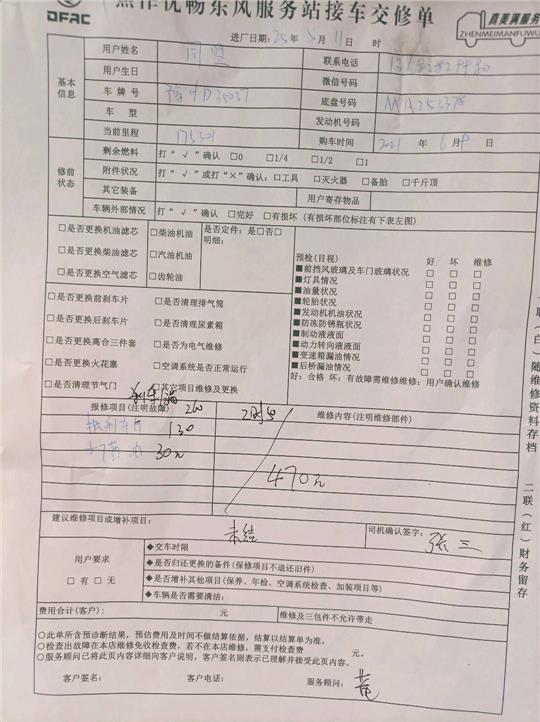 焦作优畅东风服务站接车交修单
DFAC
真美满服务
ZHENMEIMANFUWU
进厂日期：25年5月11日 时
基本信息
用户姓名
联系电话
用户生日
微信号码
车牌号
底盘号码 MA253378
车型
发动机号码
当前里程 175301
购车时间 2021年6月9日
修前状态
剩余燃料 打“√”确认 □0 □1/4 □1/2 □1
附件状况 打“√”或打“×”确认：□工具 □灭火器 □备胎 □千斤顶
其它装备
用户寄存物品
车辆外部情况 打“√”确认 □完好 □有损坏（有损坏部位标注有下表左图）
□是否更换机油滤芯 □柴油机油 是否定件：是□否□
□是否更换柴油滤芯 □汽油机油 明细：
□是否更换空气滤芯 □齿轮油
□是否更换前刹车片 □是否清理排气筒
□是否更换后刹车片 □是否清理尿素箱
□是否更换离合三件套 □是否为电气维修
□是否更换火花塞 □空调系统是否正常运行
□是否清理节气门 □其它项目维修及更换
预检（目视） 好 坏 维修
■前挡风玻璃及车门玻璃状况 □ □ □
■灯具情况 □ □ □
■油量状况 □ □ □
■轮胎状况 □ □ □
■发动机机油状况 □ □ □
■防冻防锈瓶状况 □ □ □
■制动液液面 □ □ □
■动力转向液液面 □ □ □
■变速箱漏油情况 □ □ □
■后桥漏油情况 □ □ □
好：合格 坏：有故障需维修维修：用户确认维修
报修项目（注明故障）
维修内容（注明维修部件）
刹车片 130
黄油 30元
470元
建议维修项目或增补项目：
未结
司机确认签字：张三
用户要求
□有 □无
◆交车时限
◆是否归还更换的备件（保修项目不退还旧件）
◆是否增补其他项目（保养、年检、空调系统检查、加装项目等）
◆车辆是否需要清洁：
费用合计（客户）： 元
维修及三包件不允许带走
○此单所含预诊断结果，预估费用及时间不做结算依据，结算以结算单为准。
○检查出故障在本店维修免收检查费，若不在本店维修，需支付检查费 元。
○服务顾问已将此页内容详细向客户说明，客户签名则表示已理解并接受此页内容。
客户签名： 客户电话： 服务顾问：
一联（白）随维修资料存档
二联（红）财务留存